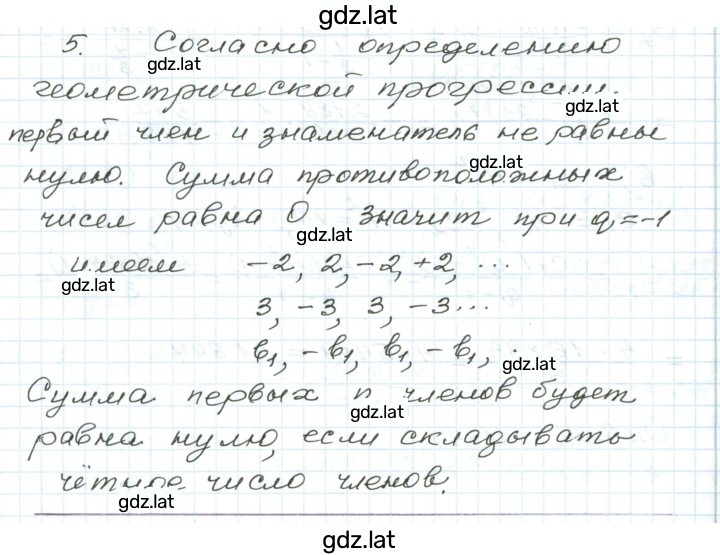 gdz.lat
5. Согласно определению
gdz.lat
геометрической прогрессии.
gdz.lat
первый член и знаменатель не равны
gdz.lat
нулю. Сумма противоположных
чисел равна 0 значит при q=-1
gdz.lat
имеем -2, 2, -2, +2, ...
gdz.lat
3, -3, 3, -3...
b₁, -b₁, b₁, -b₁, ..
gdz.lat
Сумма первых n членов будет
gdz.lat
равна нулю, если складывать
чётное число членов.
gdz.lat
gdz.lat